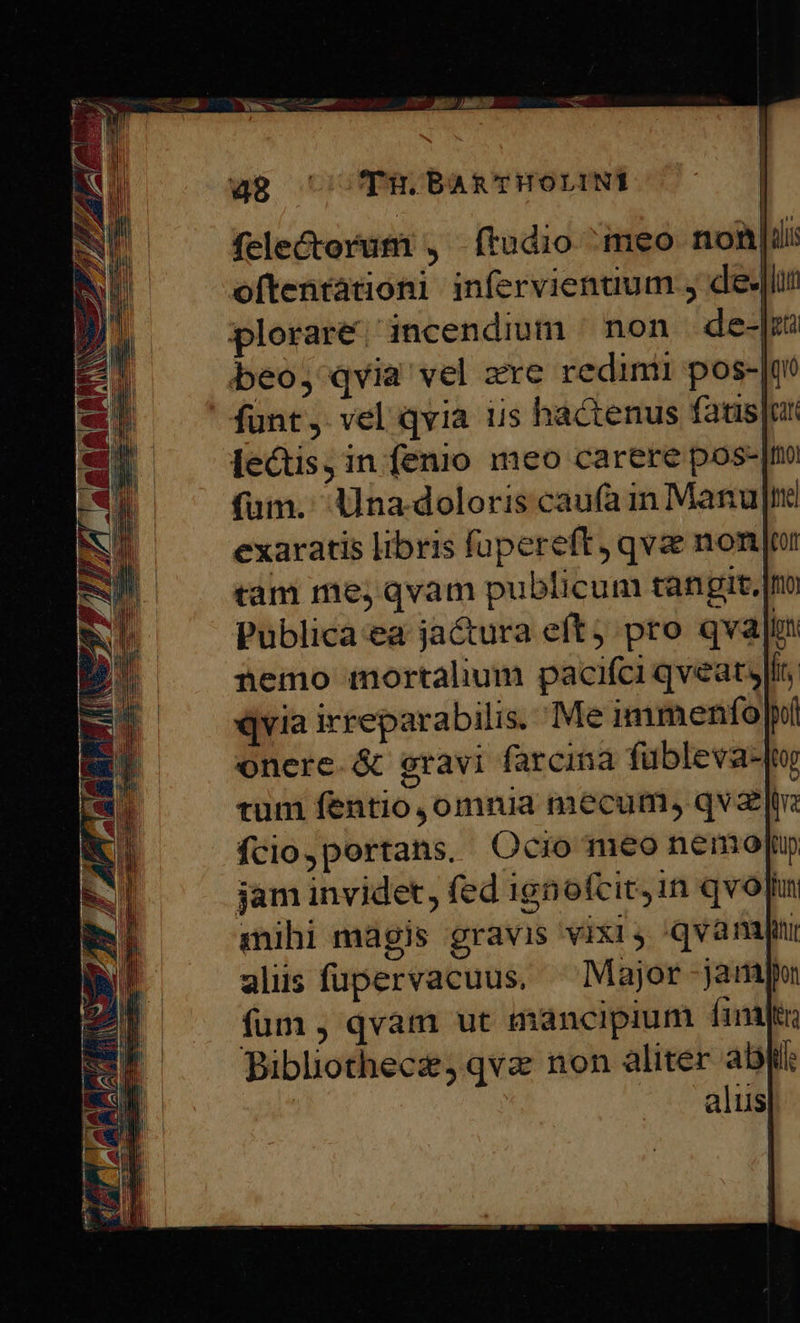 48 TH. BARTHOLINI
ſelectorum, ſtudio meo non
oſtentationi inſervientium, de-
plorare incendium non de-
beo, qvia vel ære redimi pos-
ſunt, vel qvia iis hactenus ſatis
lectis, in ſenio meo carere pos-
ſum. Una doloris cauſa in Manu
exaratis libris ſupereſt, qvæ non
tam me, qvam publicum tangit.
Publica ea jactura eſt, pro qva
nemo mortalium paciſci qveat,
qvia irreparabilis. Me immenſo
onere & gravi ſarcina ſubleva-
tum ſentio, omnia mecum, qvæ
ſcio, portans. Ocio meo nemo
jam invidet, ſed ignoſcit, in qvo
mihi magis gravis vixi, qvam
aliis ſupervacuus. Major jam
ſum, qvam ut mancipium ſim
Bibliothecæ, qvæ non aliter ab
aliis